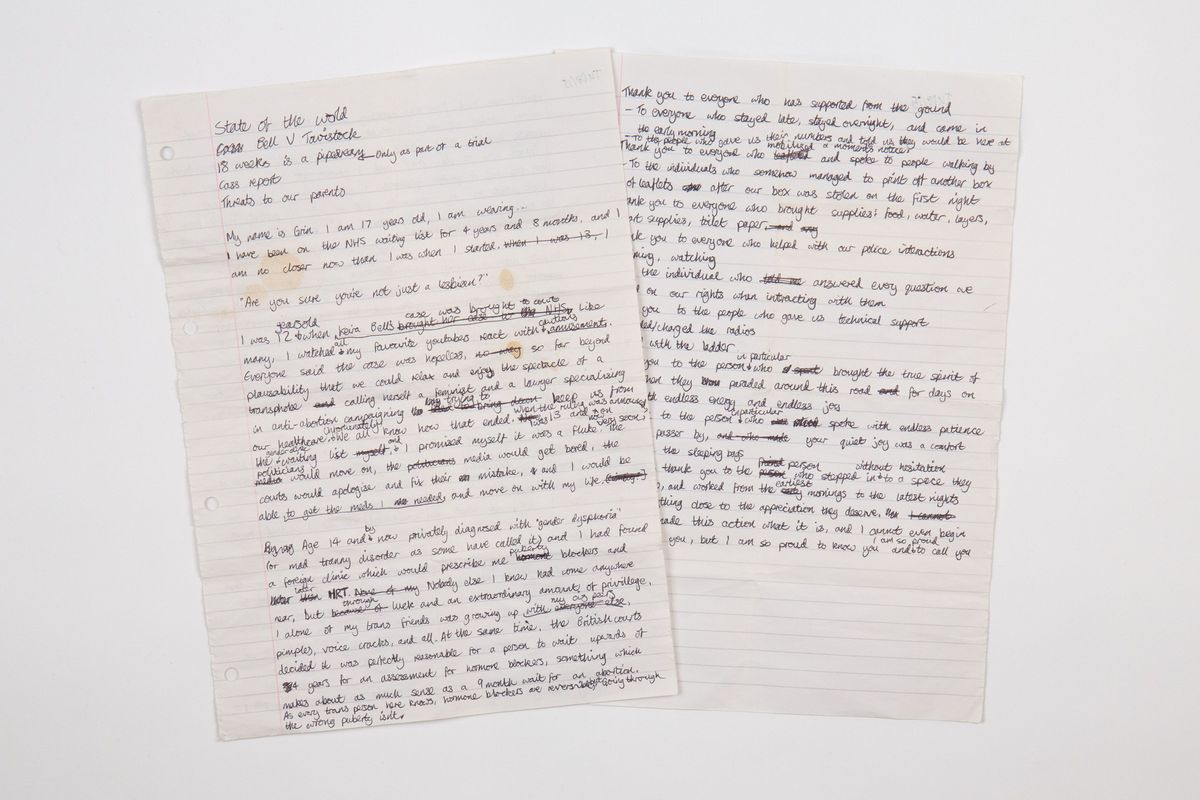 State of the world
Cass Bell V Tavistock
18 weeks is a pipedream only as part of a trial
Cass report
Threats to our parents
My name is Grin I am 17 years old, I am wearing...
I have been on the NHS waiting list for 4 years and 8 months, and I
am no closer now than I was when I started. When I was 13, I
"Are you sure you're not just a lesbian?"
years old case was brought to court
I was 12 when Keira Bells brought her case to the NHS. Like
all cautious
many, I watched my favourite youtubers react with amusements.
Everyone said the case was hopeless, no way so far beyond
plausability that we could relax and enjoy the spectacle of a
transphobe and calling herself a feminist and a lawyer specialising
in anti-abortion campaigning trying to bring down keep us from
our healthcare. Unfortunately we all know how that ended. when the ruling was announced
gender clinic and I was 13 and not on
the waiting list myself, I promised myself it was a fluke, the very soon,
politicians
media would move on, the politicians media would get bored, the
courts would apologise and fix their mistake, and I would be
able to get the meds I needed, and move on with my life.
by
By my Age 14 and now privately diagnosed with "gender dysphoria"
(or mad tranny disorder as some have called it) and I had found
puberty
a foreign clinic which would prescribe me hormone blockers and
later
later than HRT. None of my Nobody else I knew had come anywhere
through
near, but because of luck and an extraordinary amount of privilege,
my cis peers
I alone of my trans friends was growing up with everyone else,
pimples, voice cracks, and all. At the same time, the British courts
decided it was perfectly reasonable for a person to wait upwards of
4 years for an assessment for hormone blockers, something which
makes about as much sense as a 9 month wait for an abortion.
As every trans person here knows, hormone blockers are reversible, but going through
the wrong puberty isn't.
Thank you to everyone who has supported from the ground
- To everyone who stayed late, stayed overnight, and came in
the early morning
- To the people who gave us their numbers and told us they would be here at
mobilized a moments notice
Thank you to everyone who leafleted and spoke to people walking by
- To the individuals who somehow managed to print off another box
of leaflets after our box was stolen on the first night
ank you to everyone who brought supplies: food, water, layers,
art supplies, toilet paper, and any
nk you to everyone who helped with our police interactions
ming, watching
the individual who told me answered every question we
on our rights when intracting with them
you to the people who gave us technical support
ded/charged the radios
with the ladder
in particular
you to the person who spent brought the true spirit of
hen they paraded around this road and for days on
th endless energy and endless joy
in particular
to the person who spoke with endless patience
passer by, and who made your quiet joy was a comfort
the sleeping bags
friend person without hesitation
thank you to the person who stepped in to a space they
earliest
, and worked from the early mornings to the latest nights
thing close to the appreciation they deserve, I cannot
made this action what it is, and I cannot even begin
I am so proud
you, but I am so proud to know you and to call you